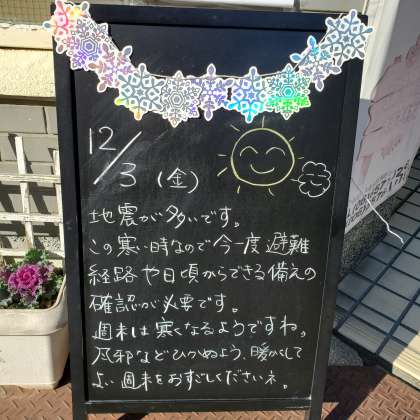 12/3 (金)
地震が多いです。
この寒い時なので今一度避難
経路や日頃からできる備えの
確認が必要です。
週末は寒くなるようですね。
風邪などひかぬよう、暖かくして
よい週末をおすごしくださいネ。